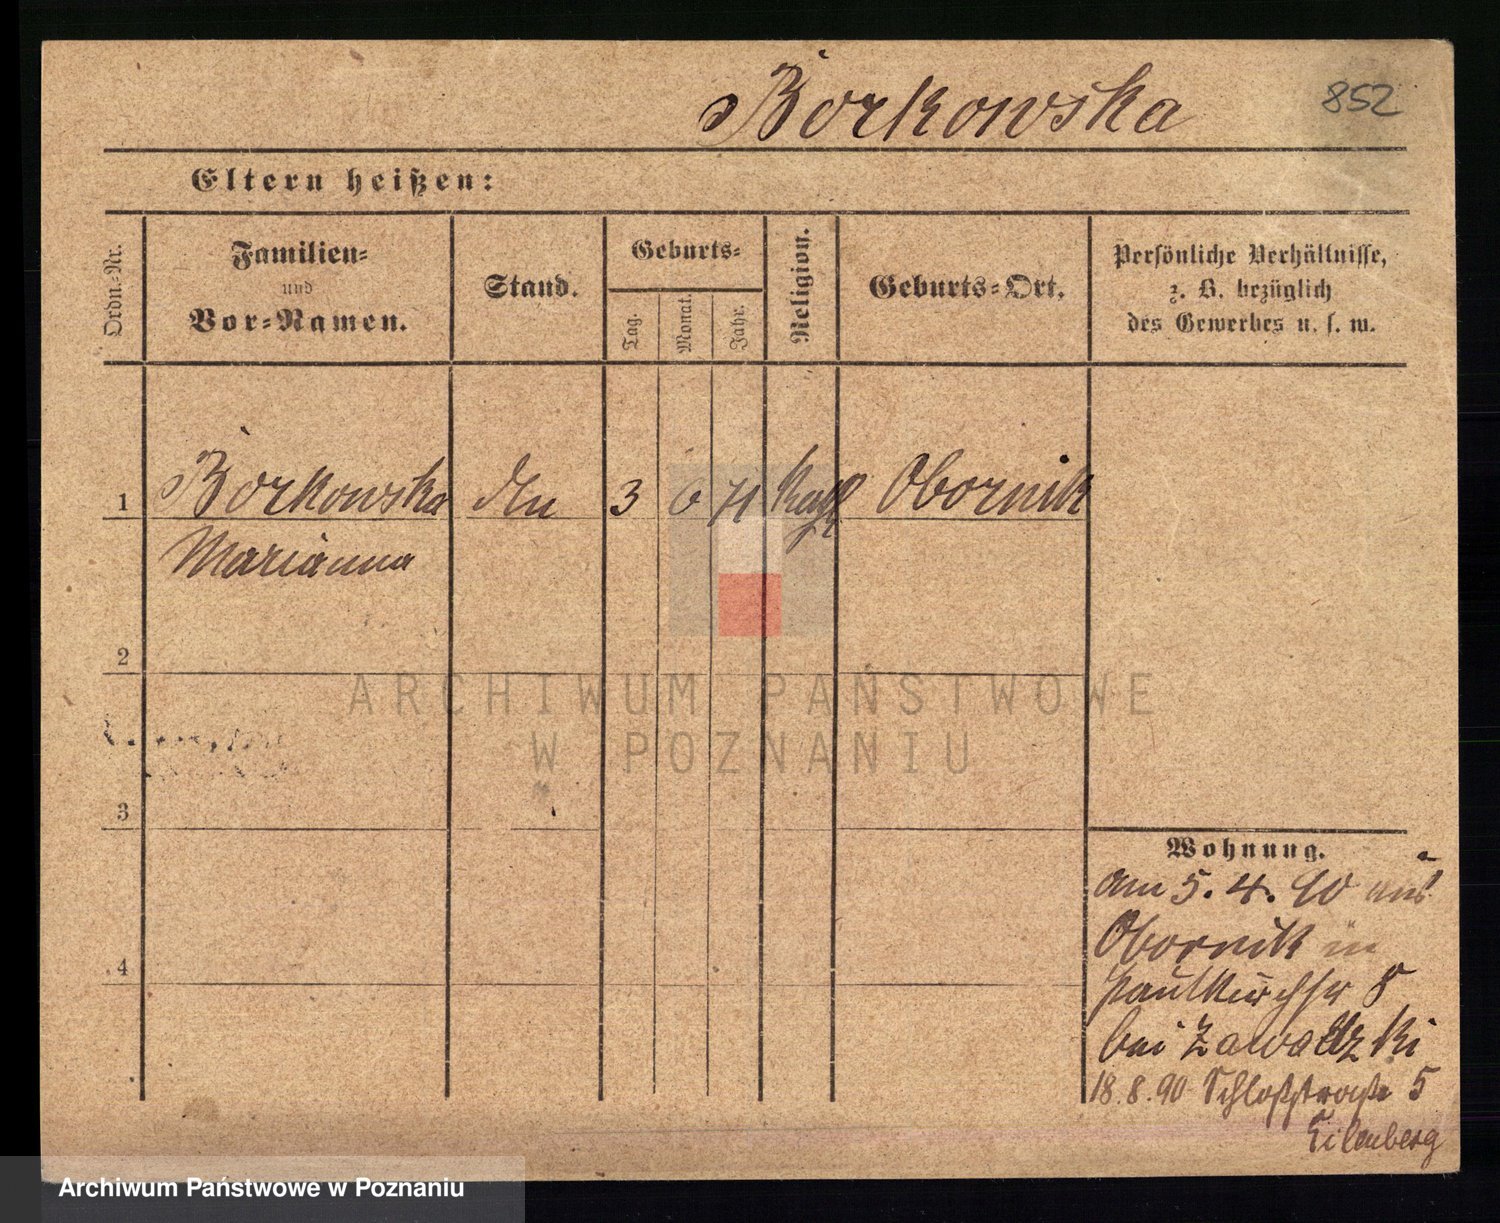 Borkowska
852
Eltern heißen:
Ordn.-Nr.
Familien-
und
Vor-Namen.
Stand.
Geburts-
Tag.
Monat.
Jahr.
Religion.
Geburts-Ort.
Persönliche Verhältnisse,
z. B. bezüglich
des Gewerbes u. s. w.
1 Borkowska 3 6 71 Kath Obornik
Marianna
2
3
4
ARCHIWUM PAŃSTWOWE
W POZNANIU
Wohnung.
am 5. 4. 90 aus
Obornik in
Paulkirchstr 8
bei Zawadzki
18. 8. 90 Schloßstraße 5
Eilenberg
Archiwum Państwowe w Poznaniu